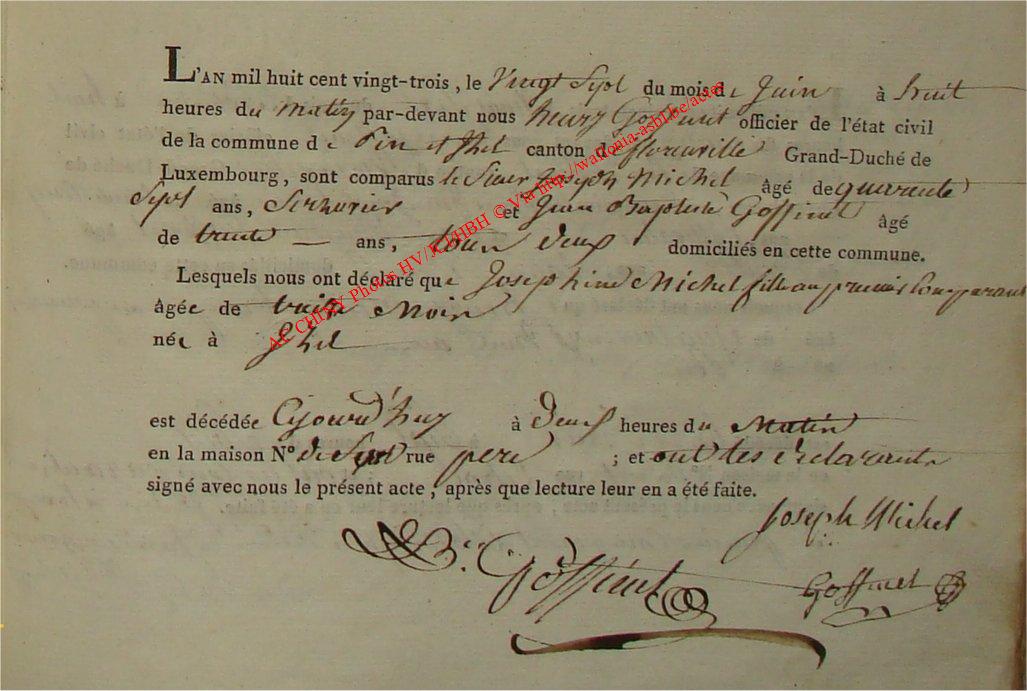 L'AN mil huit cent vingt-trois, le Vingt Sept du mois de Juin à huit
heures du Matin par-devant nous henry Goffinet officier de l'état civil
de la commune d e Pin et Izel canton de florenville Grand-Duché de
Luxembourg, sont comparus le Sieur Joseph Michel âgé de quarante
Sept ans, Serrurier et Jean Baptiste Goffinet âgé
de trente — ans, tous deux domiciliés en cette commune.
Lesquels nous ont déclaré que Josephine Michel fille au premier Comparant
âgée de Moir
née à Izel
est décédée Cejourd'huy à deux heures du Matin
en la maison N° de rue ; et ont les déclarants
signé avec nous le présent acte, après que lecture leur en a été faite.
Joseph Michel
Goffinet
Goffinet
AC CHINY Photos HV/ © Via http://wallonia-asbl.be/actes